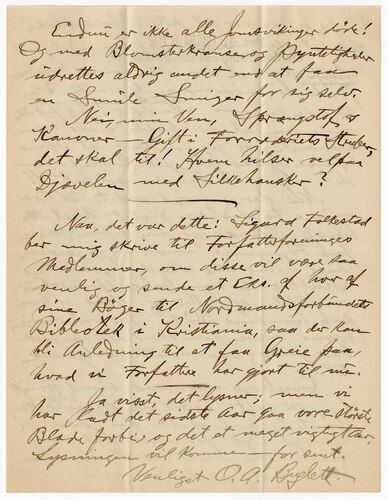 Endnu er ikke alle Jomsvikinger døde!
Og med Blomsterkranse og Pynteligheder
udrettes aldrig andet end at faa
en Smule Smiger for sig selv.
Nei, min Ven, Sprængstof og
Kanoner – Gift i Forræderiets Strube,
det skal til! Hvem hilser vel paa
Djævelen med Silkehansker?
Naa, det var dette: Sigurd Folkestad
ber mig skrive til Forfatterforeningens
Medlemmer, om disse vil være saa
venlig og sende et Eks. af hver af
sine Bøger til Nordmandsforbundets
Bibliotek i Kristiania, saa der kan
bli Anledning til at faa Greie paa,
hvad vi Forfattere har gjort til nu.
Ja visst, det lysner; men vi
har ladt det sidste Aar gaa vore største
Blade forbi, og det et meget vigtigt Aar.
Lysningen vil komme – for sent.
Venligst O. A.